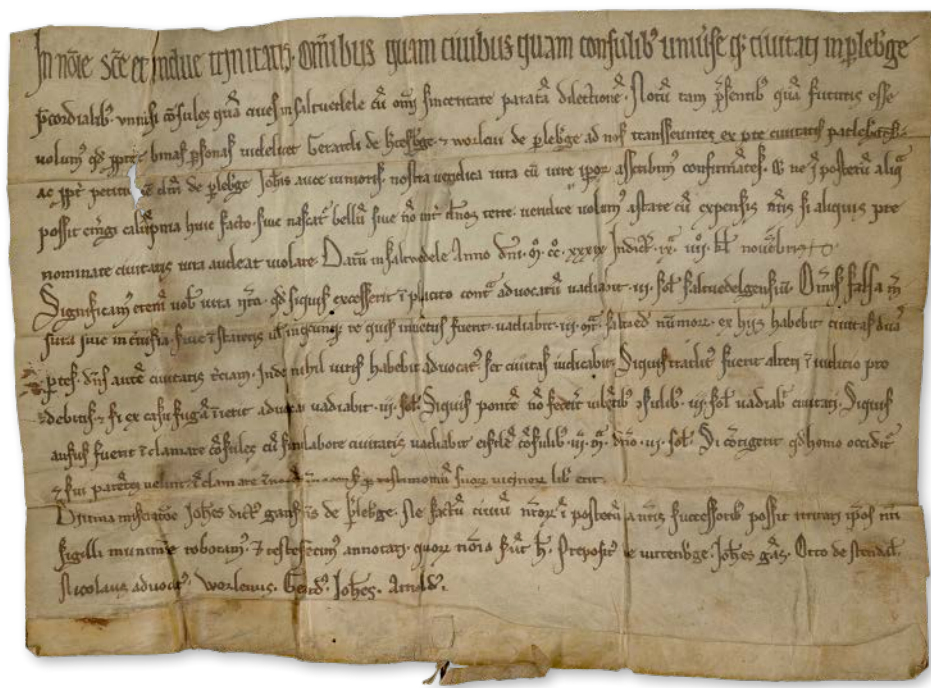 In nōie Scē et indiue trinitatis. Omibus quam ciuibus quam consulib' uniūse q; ciuitatis in p̄leb'ge
p̄cordialib'. uniūsi cōsules quā ciues in saltwedele cū om̄i sinceritate paratā dilectionē. Notū tam p̄sentib' quā futuris esse
uolum' qd ppt' binas psonas uidelicet Gerardi de & worleui de p̄leb'ge ad nos transeuntes ex pte ciuitatis
ac ppt' dn̄i de p̄leb'ge Joh'is auce iunioris. nostra uendica iura cū iure ipor' ascribim' confirmātes. ne ī posterū aliq̄
possit ēm'gi calūpnia huic facto. siue nascat' bellū siue nō int' dn̄os terre. uendice uolum' astare cū expensis nr̄is si aliquis pre
nominate ciuitatis iura audeat uiolare. Datū in saltwedele Anno dn̄i. m̊. cc̊. xxxix Indict'. kl' nouēbris
Significam' etem uob' iura nr̄a. qd siquis excesserit ī placito cont̄ aduocatū uadiabit. iii. sol' saltwedelgensiū. Om̄is falsa m̄
sura siue in siue ī stateris ul' in quis inuētus fuerit. uadiabit. iii. mr̄. nūmor'. ex hijs habebit ciuitas duas
ptes. dn̄s autē ciuitatis t'ciam. Inde nihil iuris habebit aduocat' set ciuitas iudicabit. Siquis tradit' fuerit alteri ī iudicio pro
debitis. & si ex casu fugā inierit aduocat' uadiabit. iii. sol'. Siquis pontē nō fecerit iubētib' ɔsulib'. iii. sol' uadiab' ciuitati. Siquis
ausus fuerit īclamare cōsules cū sint labore ciuitatis uadiabit eisdē cōsulib'. iii. mr̄. dn̄o. vi. sol'. Si cōtigerit qd homo occidit'
& sui parētes uelint īclamare testimoniū suor' uicinor' lib' erit.
Diuina miseratōe Joh'es dict' gans dn̄s de p̄leb'ge. Ne factū ciuiū nr̄or' ī posterū a nr̄is successorib' possit irritari ipos nr̄i
sigilli munimīe roboram'. & testes secim' annotari. quor' nōīa sūt h̄. Preposit' de wittenb'ge. Joh'es gās. Otto de stendal'.
Nicolaus aduocat'. worleuus. Gerard'. Joh'es. Arnold'.